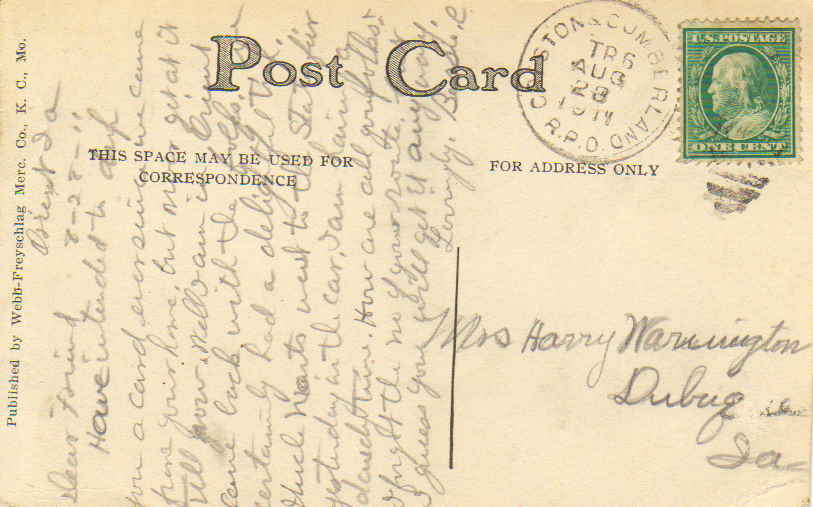 Published by Webb-Freyschlag Merc. Co., K. C., Mo.
Post Card
THIS SPACE MAY BE USED FOR
CORRESPONDENCE
FOR ADDRESS ONLY
CRESTON & CUMBERLAND
TR 6
AUG
28
1911
R.P.O.
U.S. POSTAGE
ONE CENT
Orient Ia
8-28-11
Dear Friend
Have intended to
you a card ever since we came
from your home, but never got at it
till now. Well am in Orient
came back with the folks. We
certainly had a delightful
Uncle Wants went to the State fair
yesterday in the car, I am having a
time. How are all your folks?
I forgot the no of your route, but
I guess you will get it anyway
Lovingly,
Mrs Harry Warnington
Dubuq
Ia-